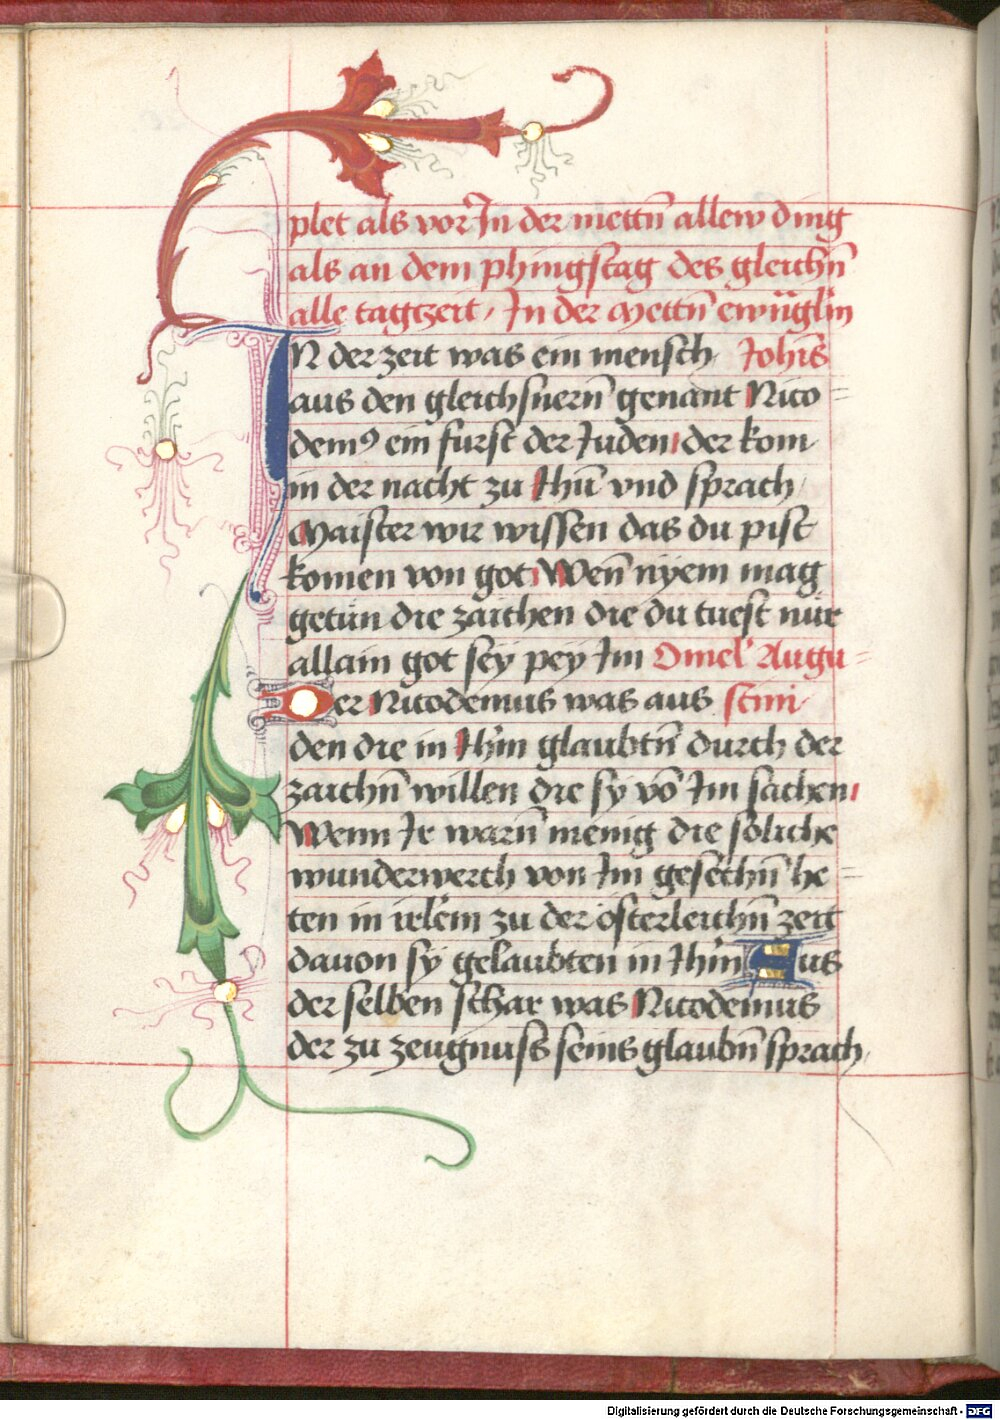 plet als vor In der mettn̄ allew ding
als an dem phingstag des gleichn̄
alle tagtzeit / In der Mettn̄ ewūglin
IN der zeit was ein mensch Joh̄is
aus den gleichsnern̄ genant Nico=
demꝰ ein furst der Juden der kom
in der nacht zu Jhū vnd sprach
Maister wir wissen das du pist
komen von got Wen̄ nyem mag
getün die zaichen die du tuest nür
allain got sey pey Im Omel' Augu=
Der Nicodemus was aus stini
den die in Jhm̄ glaubtn̄ durch der
zaichn̄ willen die sy vō Im sachen
Wenn Ir warn̄ menig die soliche
wunderwerch von Im gesechn̄ he=
ten in irl̄em zu der österleichn̄ zeit
dauon sy gelaubten in Jhm̄ Aus
der selben schar was Nicodemus
der zu zeugnuss seins glaubn̄ sprach
Digitalisierung gefördert durch die Deutsche Forschungsgemeinschaft - DFG